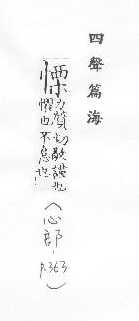 四聲篇海
慄力質切敬謹也
懼也不怠也
（心部
p.363）